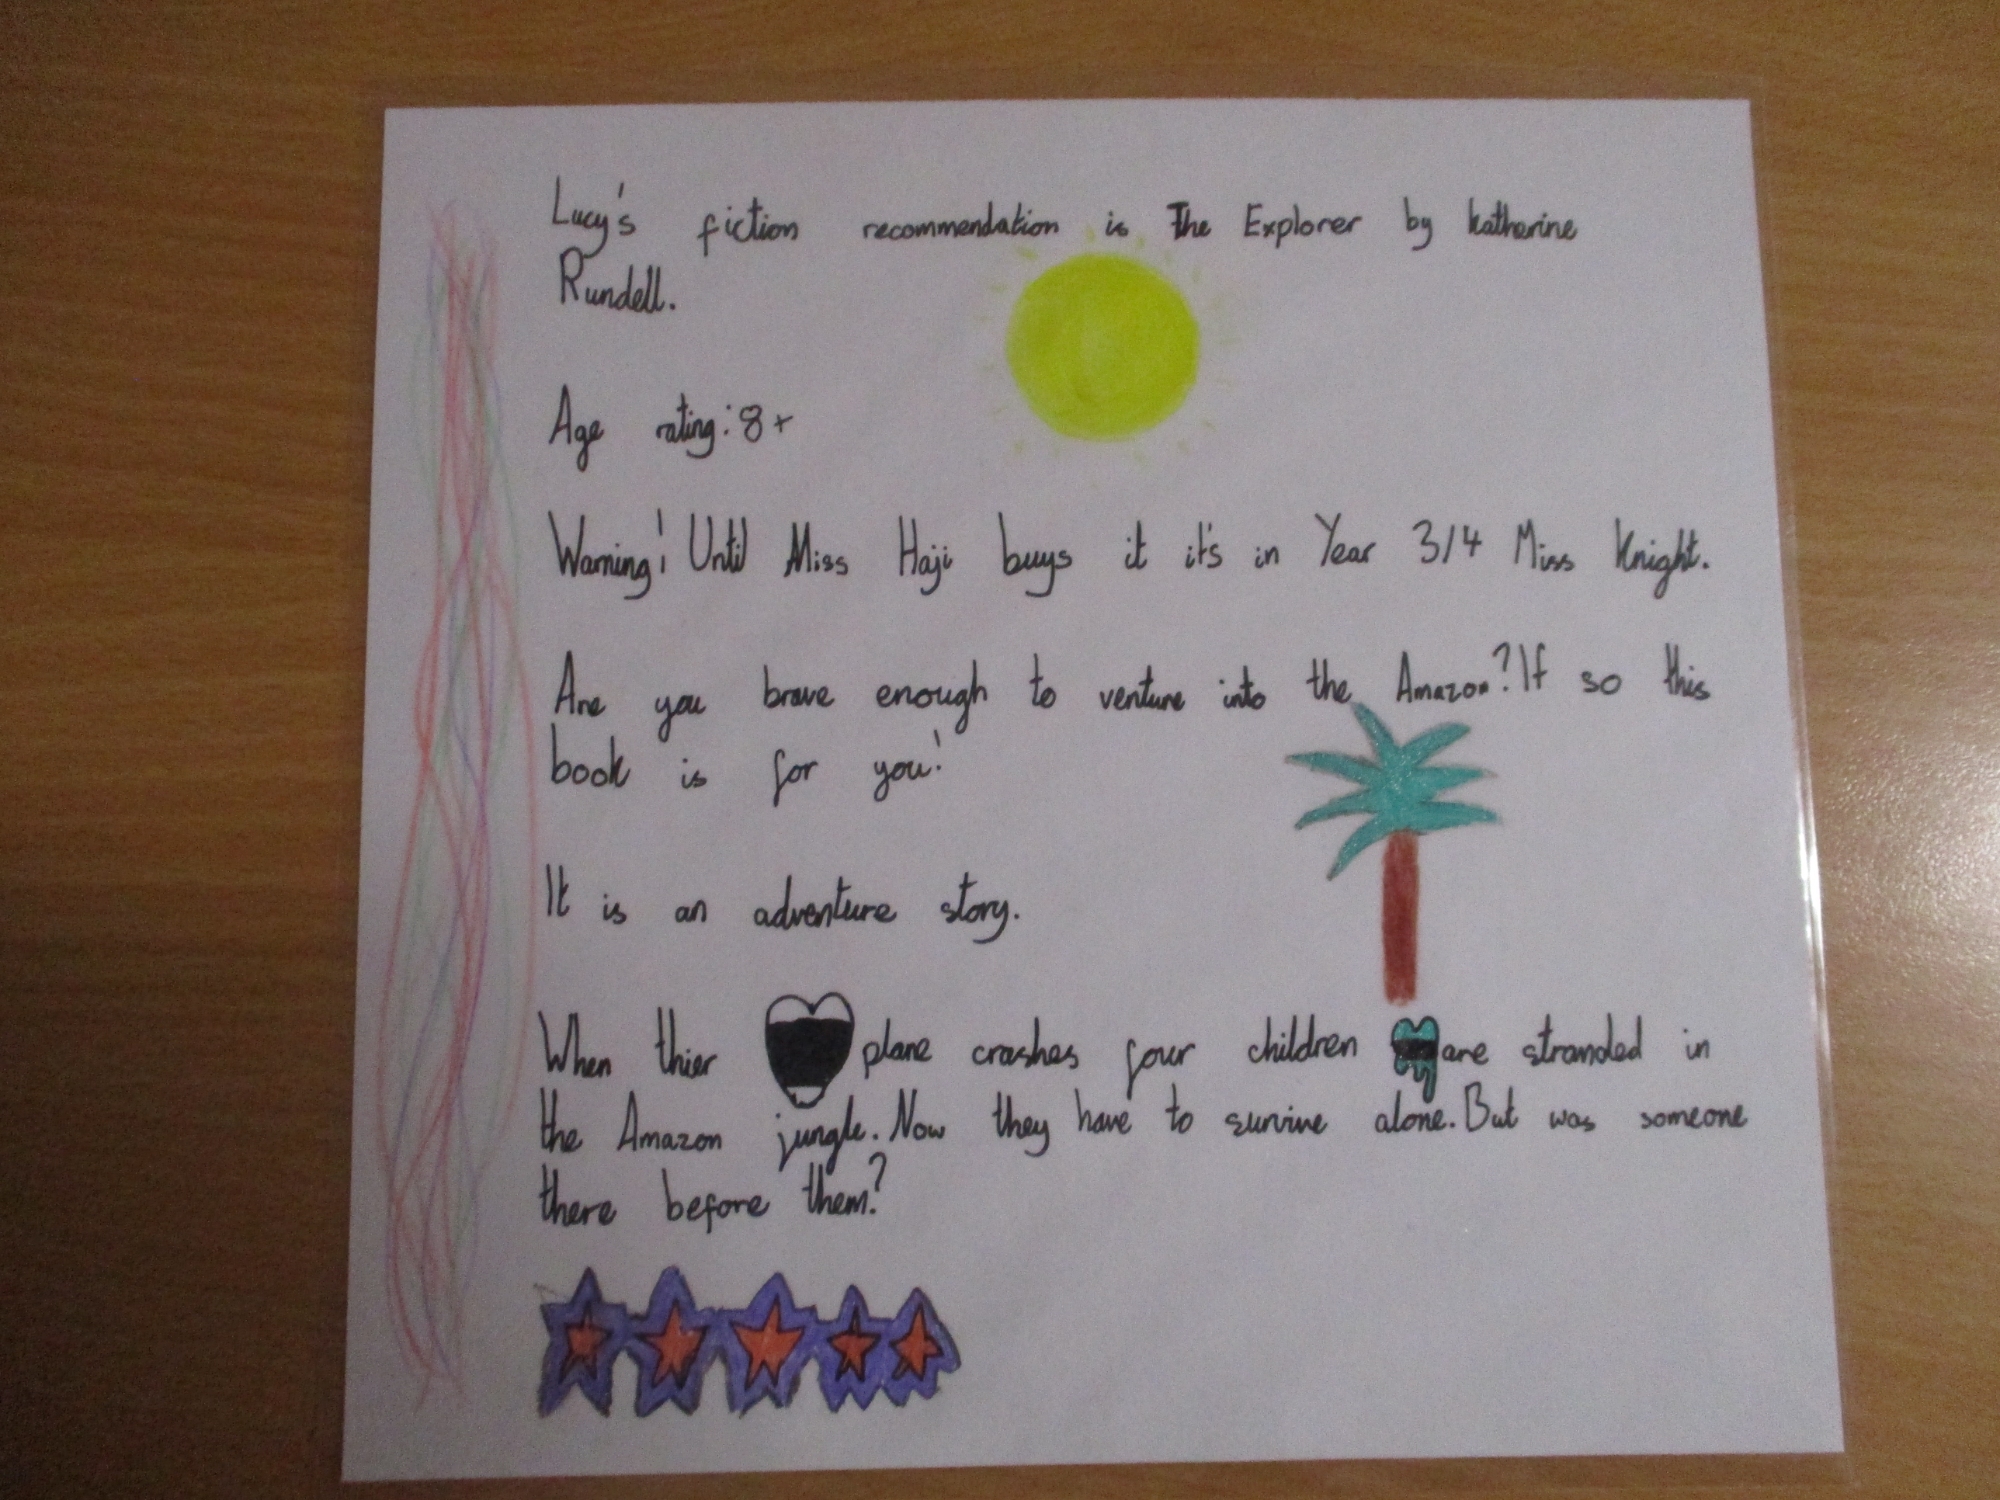 Lucy's fiction recommendation is The Explorer by Katherine
Rundell.
Age rating: 8+
Warning! Until Miss Haji buys it it's in Year 3/4 Miss Knight.
Are you brave enough to venture into the Amazon? If so this
book is for you!
It is an adventure story.
When thier plane crashes four children are stranded in
the Amazon jungle. Now they have to survive alone. But was someone
there before them?